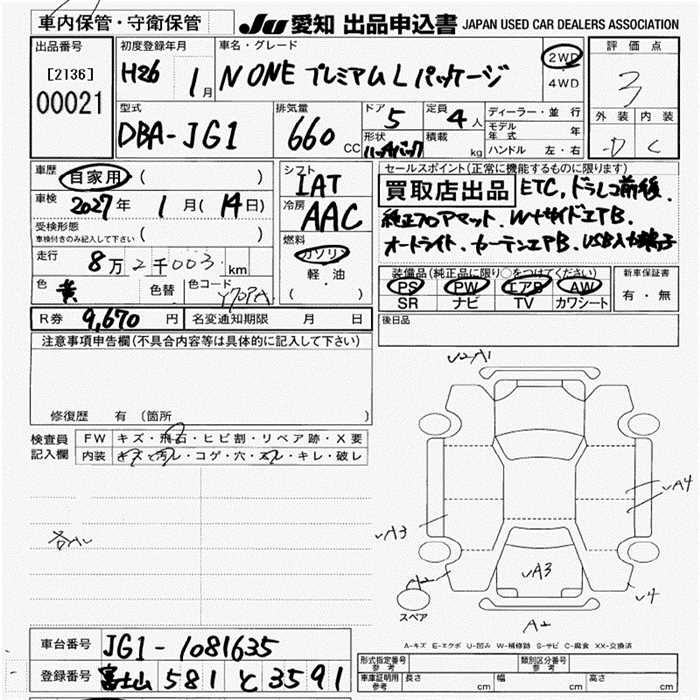 車内保管・守衛保管
JU 愛知 出品申込書 JAPAN USED CAR DEALERS ASSOCIATION
出品番号
[2136]
00021
初度登録年月
H26 1月
車名・グレード
N ONE プレミアム L パッケージ
2WD
4WD
評価点
3
外装 内装
D C
型式
DBA-JG1
排気量
660 cc
ドア
5
形状
ハッチバック
定員
4人
積載
kg
ディーラー・並行
モデル年式 年
ハンドル 左・右
車歴
自家用 ( )
車検
2027年 1月(14日)
受検形態
車検付きのみ記入して下さい ( )
走行
8万2千003 km
色
黄
色替
色コード
Y70PA
シフト
IAT
冷房
AAC
燃料
ガソリン
軽・油
( )
セールスポイント(正常に機能するものに限ります)
買取店出品 ETC, ドラレコ前後,
純正フロアマット, WサイドエアB,
オートライト, カーテンエアB, USB入力端子
装備品(純正品に限り○をつけてください)
PS PW エアB AW
SR ナビ TV カワシート
新車保証書
有・無
R券 9,670 円 名変通知期限 月 日
後日品
注意事項申告欄(不具合内容等は具体的に記入して下さい)
修復歴 有(箇所 )
検査員記入欄
FW キズ・飛石・ヒビ割・リペア跡・X要
内装 キズ・汚レ・コゲ・穴・スレ・キレ・破レ
U2-A1
UA4
UA3
UA3
A2
U4
A2
スペア
A-キズ E-エクボ U-凹み W-補修跡 S-サビ C-腐食 XX-交換済
車台番号 JG1-1081635
登録番号 富士山 581 と 3591
型式指定番号
参考
類別区分番号
参考
車庫証明用
参考
長さ cm 幅 cm 高さ cm